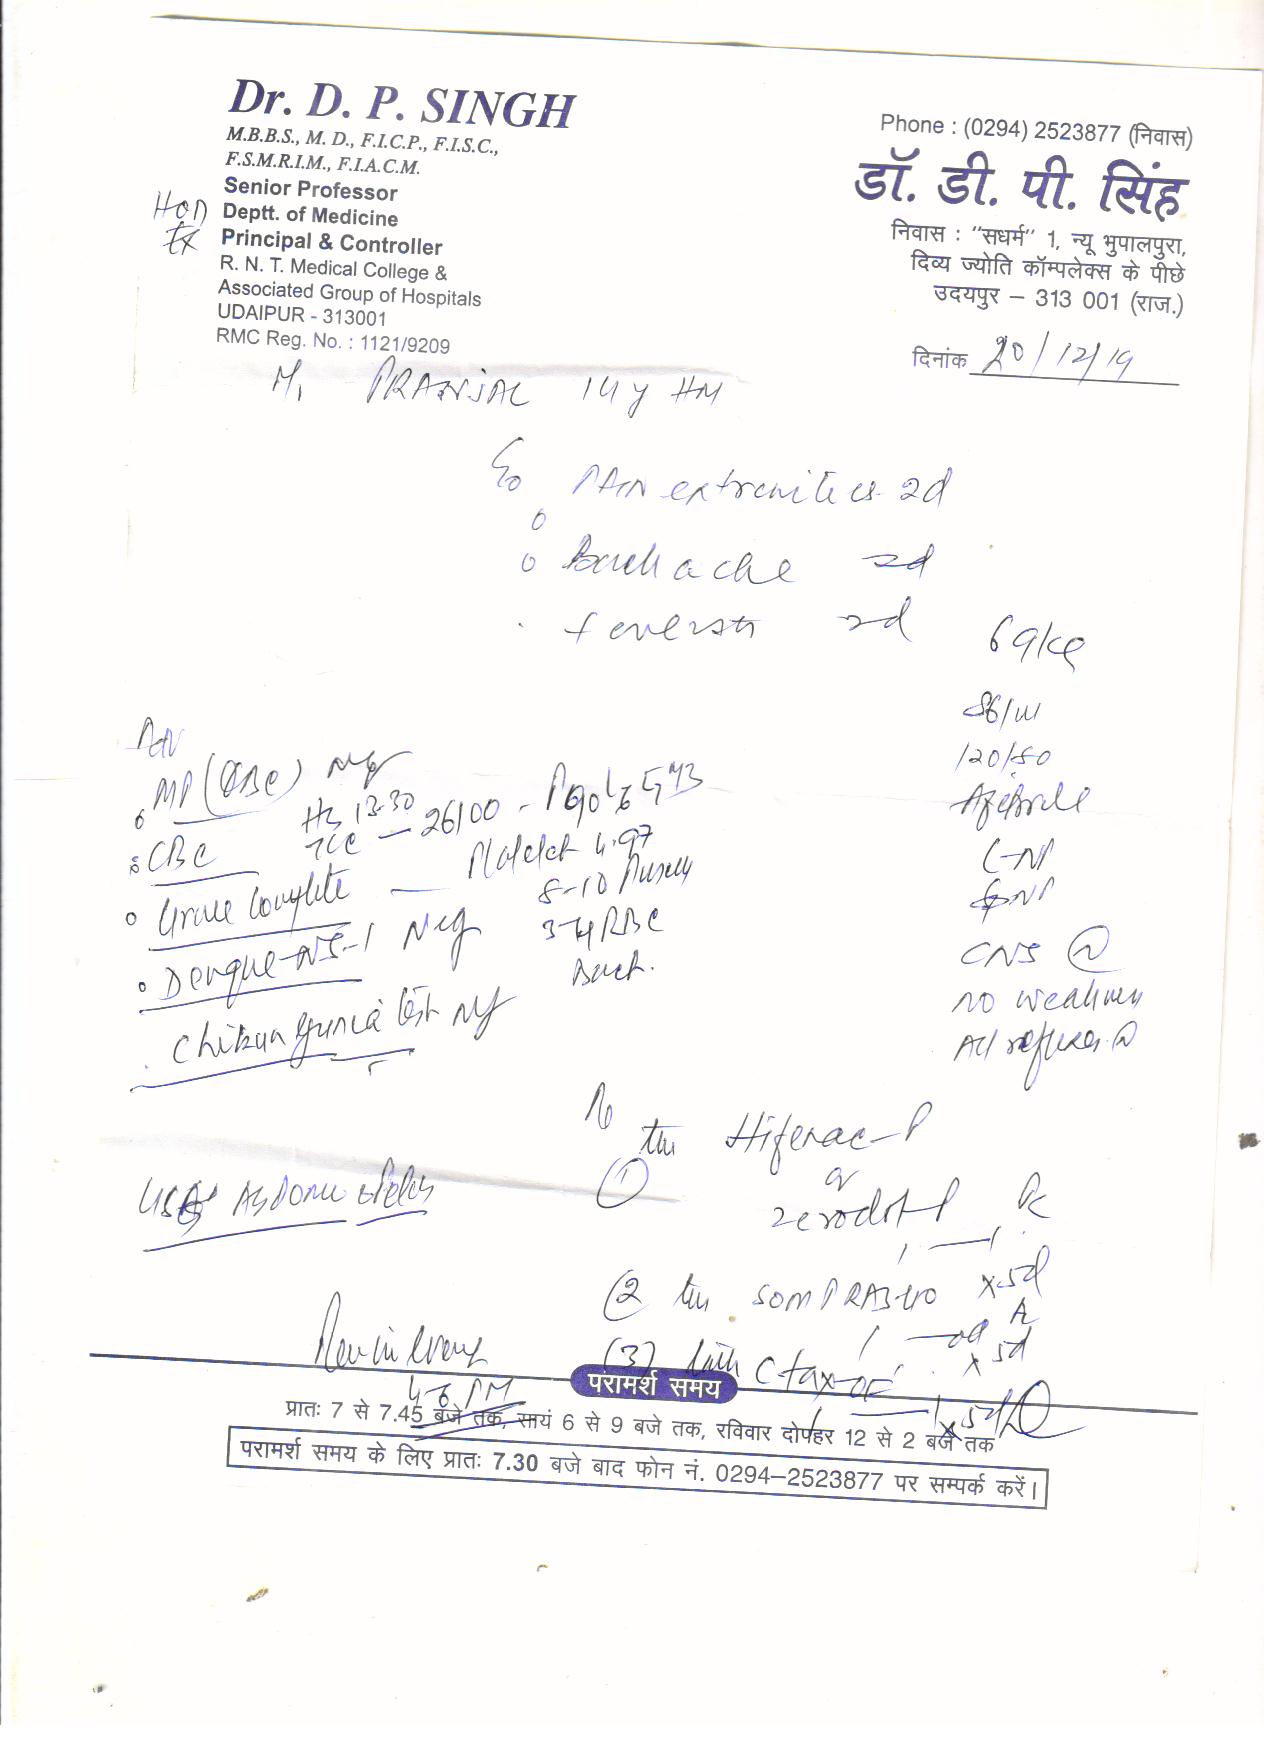 Dr. D. P. SINGH
M.B.B.S., M. D., F.I.C.P., F.I.S.C.,
F.S.M.R.I.M., F.I.A.C.M.
Senior Professor
HOD Deptt. of Medicine
Ex Principal & Controller
R. N. T. Medical College &
Associated Group of Hospitals
UDAIPUR - 313001
RMC Reg. No. : 1121/9209
Phone : (0294) 2523877 (निवास)
डॉ. डी. पी. सिंह
निवास : "सधर्म" 1, न्यू भुपालपुरा,
दिव्य ज्योति कॉम्पलेक्स के पीछे
उदयपुर – 313 001 (राज.)
दिनांक 20/12/19
PRANJAL 14 y HM
PAIN extremities 2d
Backache 2d
2d
69 kg
86/m
120/80
Afebrile
CNS (N)
no weakness
All reflexes (N)
MP (QBC) Neg
CBC Hb 13.30
TLC — 26100 - P90 L6
Platelet 4.97
Urine Complete — 8-10 Pus cells
3-4 RBC
Bact.
Dengue NS-1 Neg
Chikungunia test Neg
USG Abdomen pelvis
Hifenac-P
or
Zerodol P
1 — 1 x 5d
(2) SOMPRAZ-40
1 — od x 5d
(3) C-tax-OF
1 — 1 x 5d
Review in evening
4-6 PM
परामर्श समय
प्रातः 7 से 7.45 बजे तक, सायं 6 से 9 बजे तक, रविवार दोपहर 12 से 2 बजे तक
परामर्श समय के लिए प्रातः 7.30 बजे बाद फोन नं. 0294–2523877 पर सम्पर्क करें।